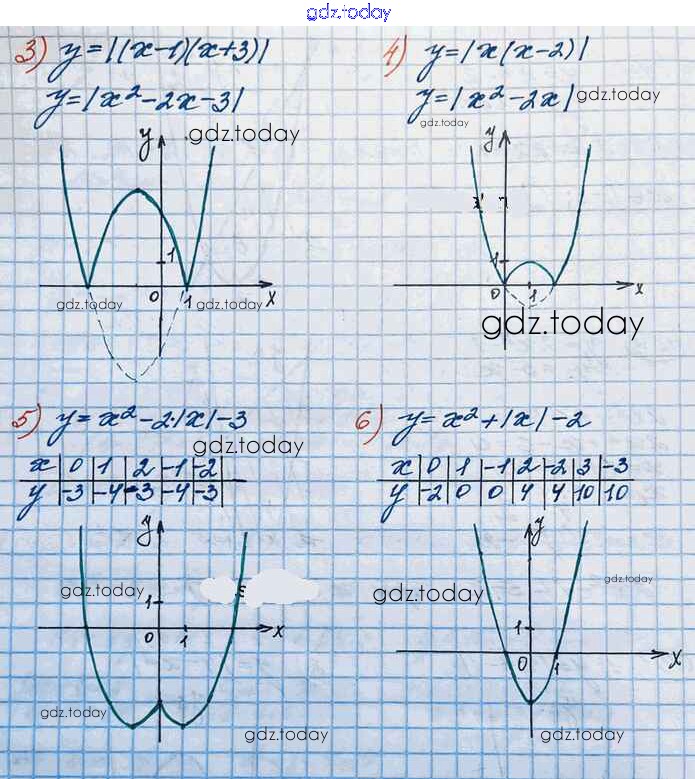 gdz.today
3) y=|(x-1)(x+3)|
y=|x²-2x-3|
gdz.today
y
1
0
1
x
gdz.today
gdz.today
4) y=|x(x-2)|
y=|x²-2x|
gdz.today
gdz.today
y
1
0
1
x
gdz.today
5) y=x²-2·|x|-3
gdz.today
x | 0 | 1 | 2 | -1 | -2 |
y | -3 | -4 | -3 | -4 | -3 |
y
gdz.today
1
0
1
x
gdz.today
gdz.today
6) y=x²+|x|-2
x | 0 | 1 | -1 | 2 | -2 | 3 | -3
y | -2 | 0 | 0 | 4 | 4 | 10 | 10
y
gdz.today
gdz.today
1
0
1
x
gdz.today